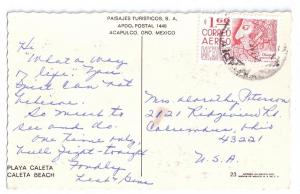 PAISAJES TURISTICOS, S. A.
APDO. POSTAL 1448
ACAPULCO, GRO. MEXICO
CORREO
AEREO
Hi.
"What a way
of life. You
just can not
believe.
So much to
see and do.
one time only,
bull fight-tonight
Fondly
Mrs Dorothy Peterson
2121 Ridgewood Rd
Columbus, Ohio
43221
U.S.A.
PLAYA CALETA
CALETA BEACH
23